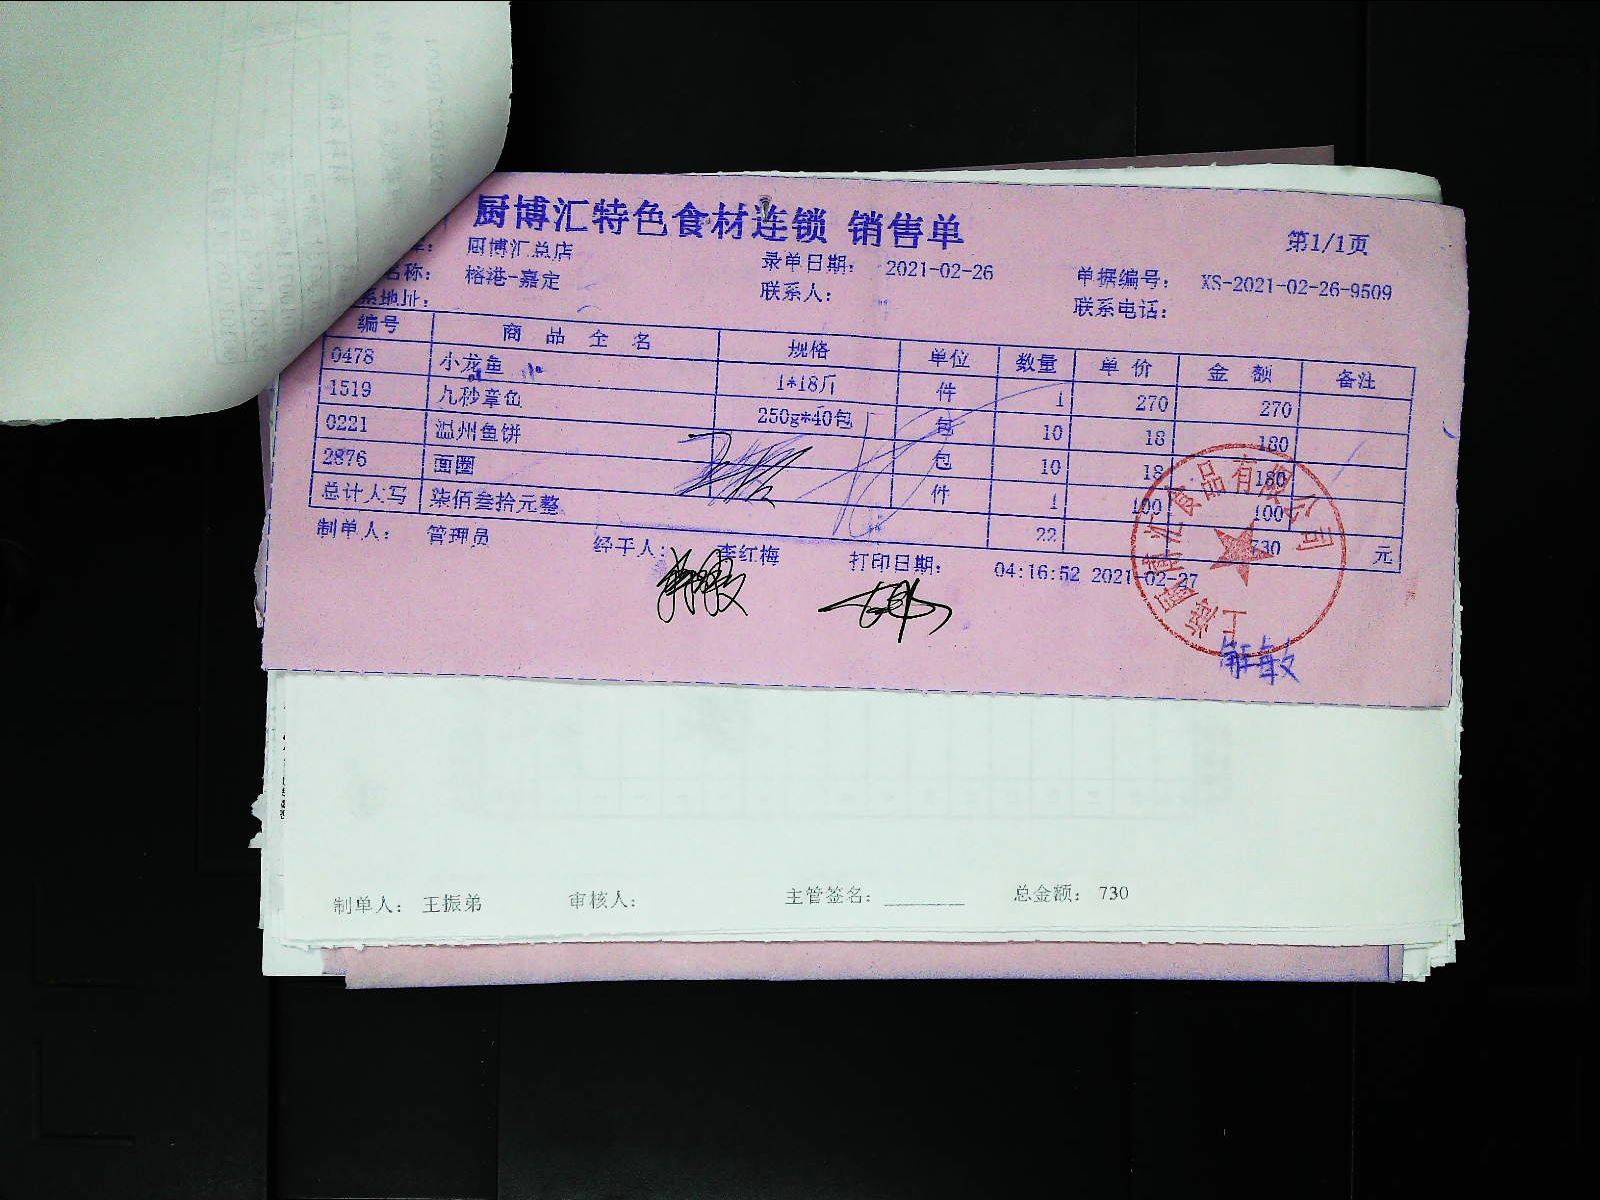 厨博汇特色食材连锁 销售单
第1/1页
厨博汇总店
录单日期: 2021-02-26
单据编号: XS-2021-02-26-9509
名称: 榕港-嘉定
联系人:
联系电话:
系地址:
编号 商品全名 规格 单位 数量 单价 金额 备注
0478 小龙鱼 1*18斤 件 1 270 270
1519 九秒章鱼 250g*40包 包 10 18 180
0221 温州鱼饼 包 10 18 180
2876 面圈 件 1 100 100
总计大写 柒佰叁拾元整 22 730 元
制单人: 管理员 经手人: 李红梅 打印日期: 04:16:52 2021-02-27
上海厨博汇食品有限公司
制单人: 王振弟 审核人: 主管签名: ________ 总金额: 730